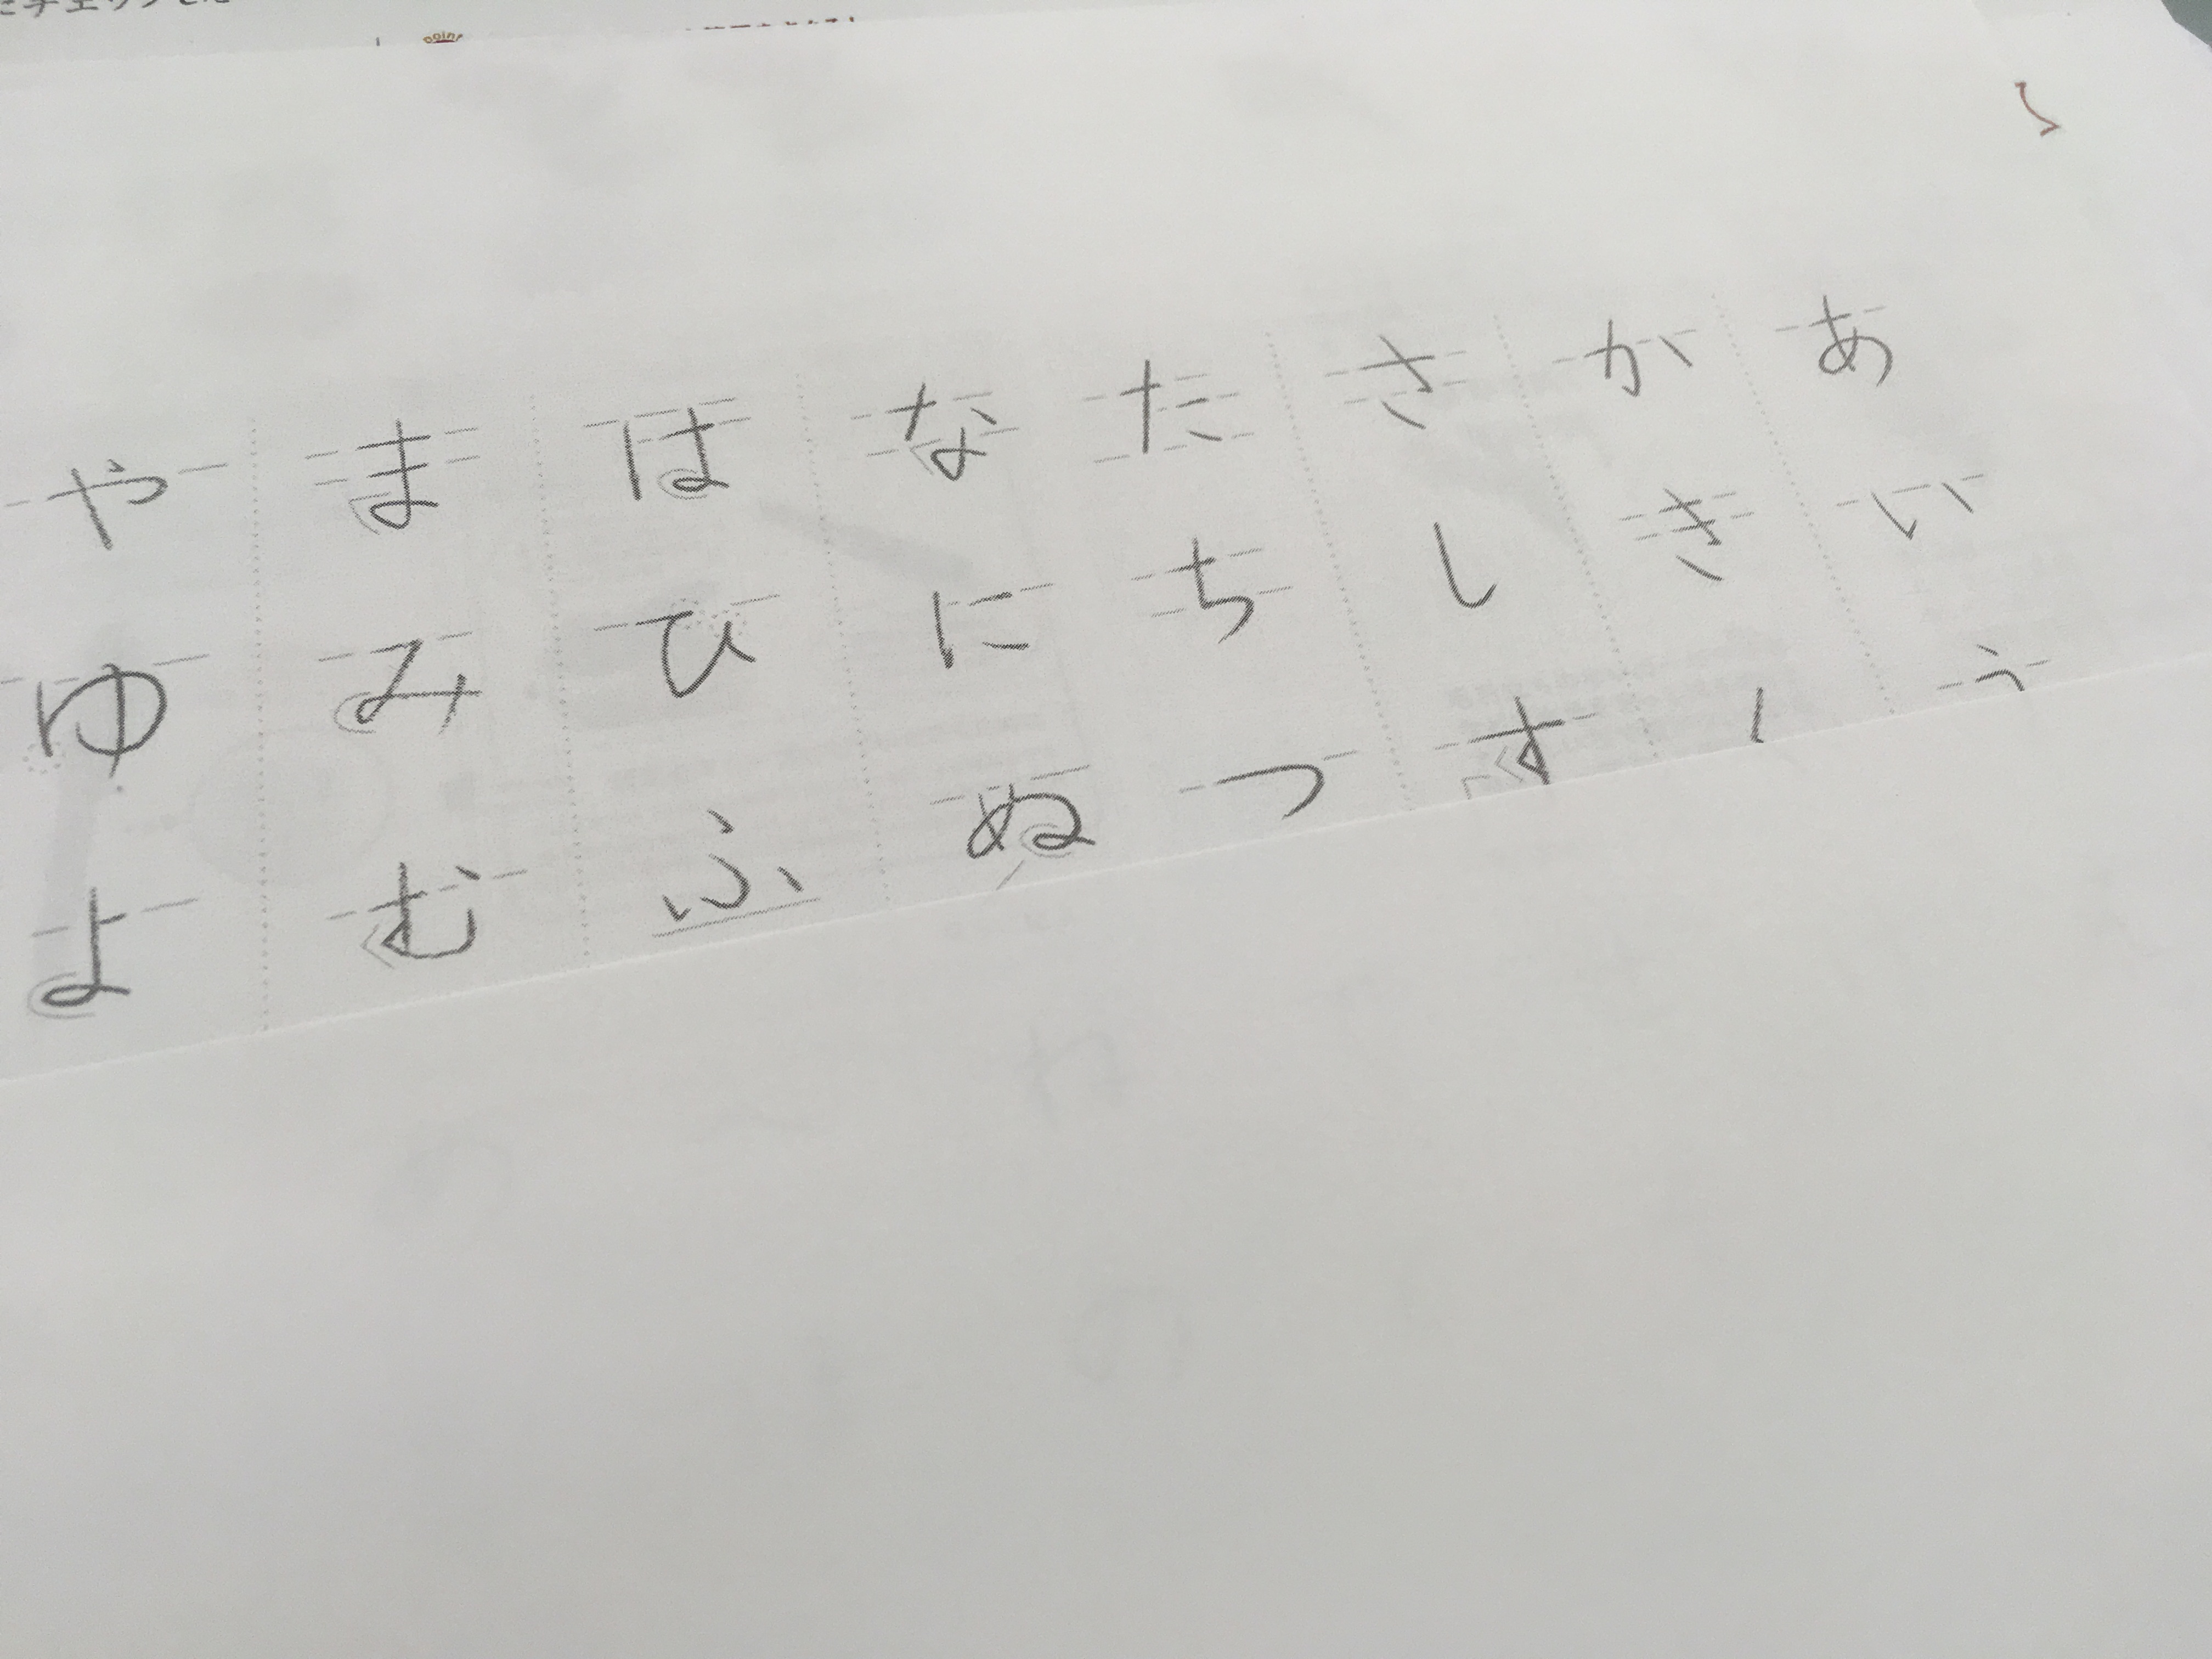 point
あいう
かき
さしす
たちつ
なにぬ
はひふ
まみむ
やゆよ